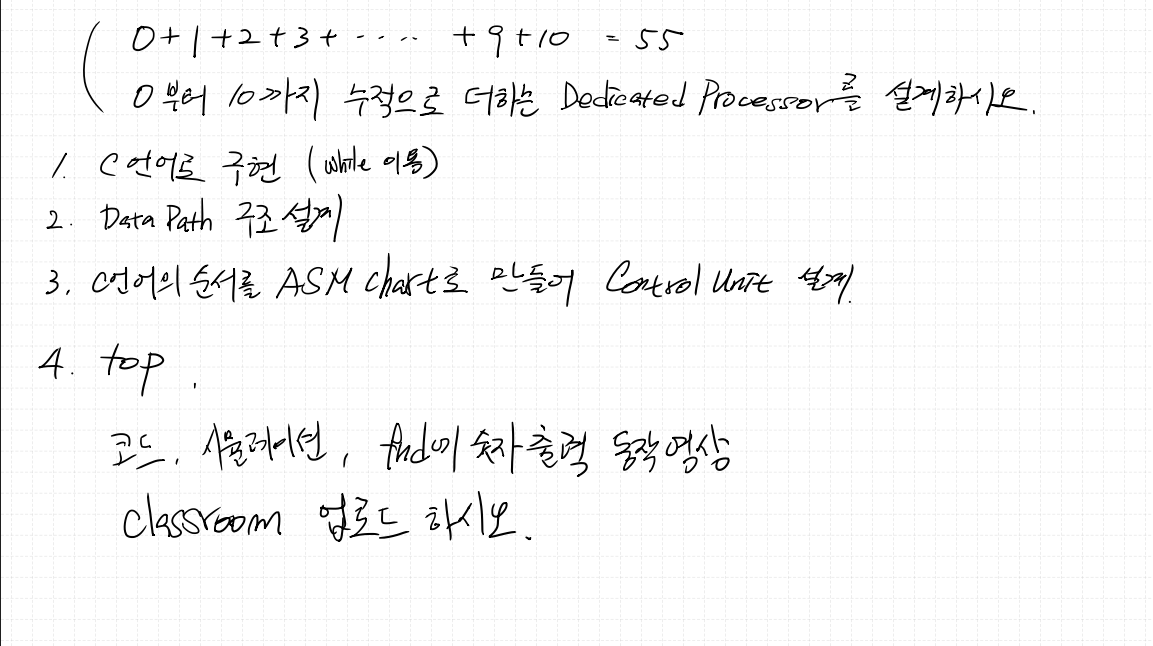 0+1+2+3+ ..... +9+10 = 55
0부터 10까지 누적으로 더하는 Dedicated Processor를 설계하시오.
1. C언어로 구현 (while 이용)
2. Data Path 구조 설계
3. C언어의 순서를 ASM chart로 만들어 Control Unit 설계.
4. top.
코드, 시뮬레이션, fnd에 숫자 출력 동작영상
classroom 업로드 하시오.